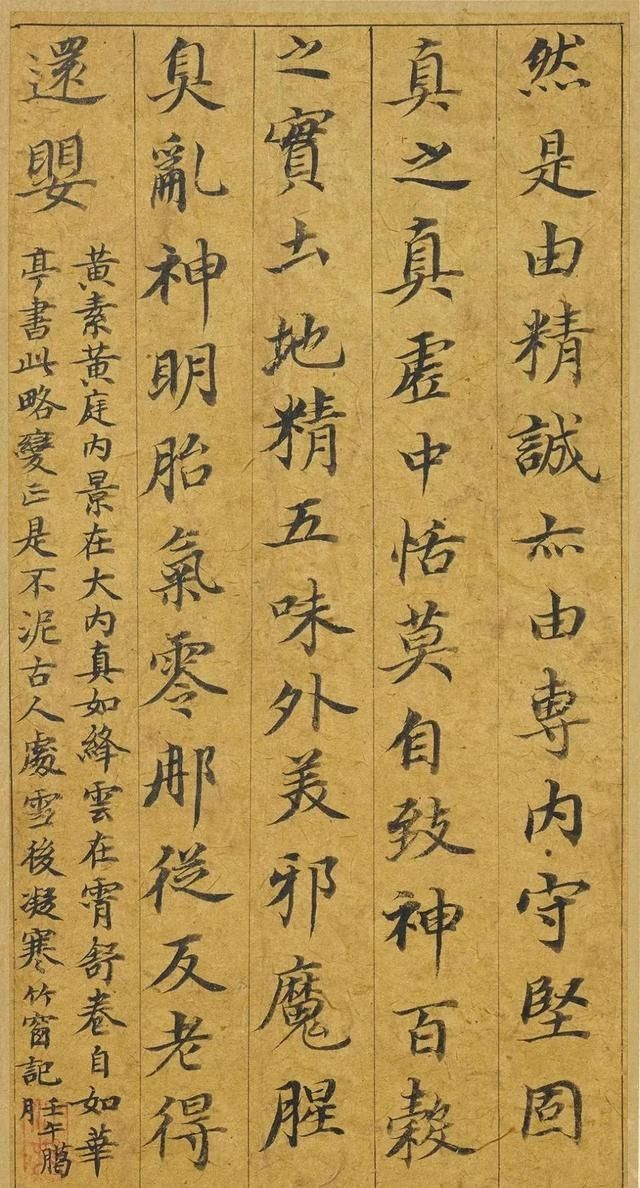 然是由精誠亦由專內守堅固
真之真虛中恬莫自致神百穀
之實土地精五味外美邪魔腥
臭亂神明胎氣零那從反老得
還嬰
黃素黃庭内景在大内真如絳雲在霄舒卷自如華
亭書此略變正是不泥古人處雪後凝寒竹窗記
壬午臈
月